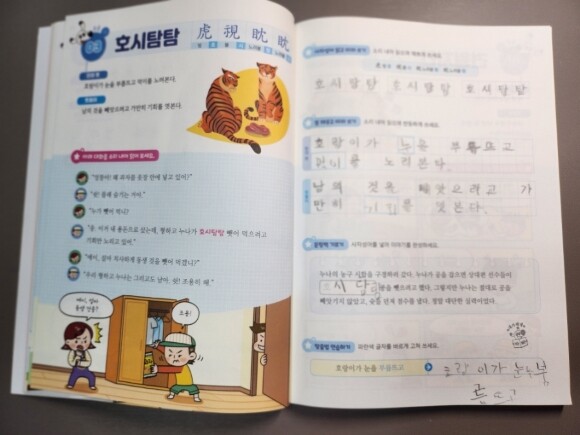 03 호시탐탐
虎 視 眈 眈
호랑이가 눈을 부릅뜨고 먹이를 노려본다.
남의 것을 빼앗으려고 가만히 기회를 엿본다.
아래 대화를 소리 내어 읽어 보세요.
"쉿! 몰래 숨기는 거야."
"누가 뺏어 먹니?"
"응, 이거 내 용돈으로 샀는데, 형하고 누나가 호시탐탐 뺏어 먹으려고
기회만 노리고 있어."
"에이, 설마 치사하게 동생 것을 뺏어 먹겠니?"
"우리 형하고 누나는 그러고도 남아. 쉿! 조용히 해."
에이, 설마
동생 것을?
조용!
호시탐탐 호시탐탐 호시탐탐
호랑이가 눈을 부릅뜨고
먹이를 노려본다.
남의 것을 빼앗으려고 가
만히 기회를 엿본다.
사자성어를 넣어 이야기를 완성하세요.
누나의 농구 시합을 구경하러 갔다. 누나가 공을 잡으면 상대편 선수들이
시탐 공을 뺏으려고 했다. 그렇지만 누나는 절대로 공을
빼앗기지 않았고, 슛을 던져 점수를 냈다. 정말 대단한 실력이었다.
맞춤법 연습하기 파란색 글자를 바르게 고쳐 쓰세요.
호랑이가 눈을 부릅뜨고
호랑이가 눈누붛